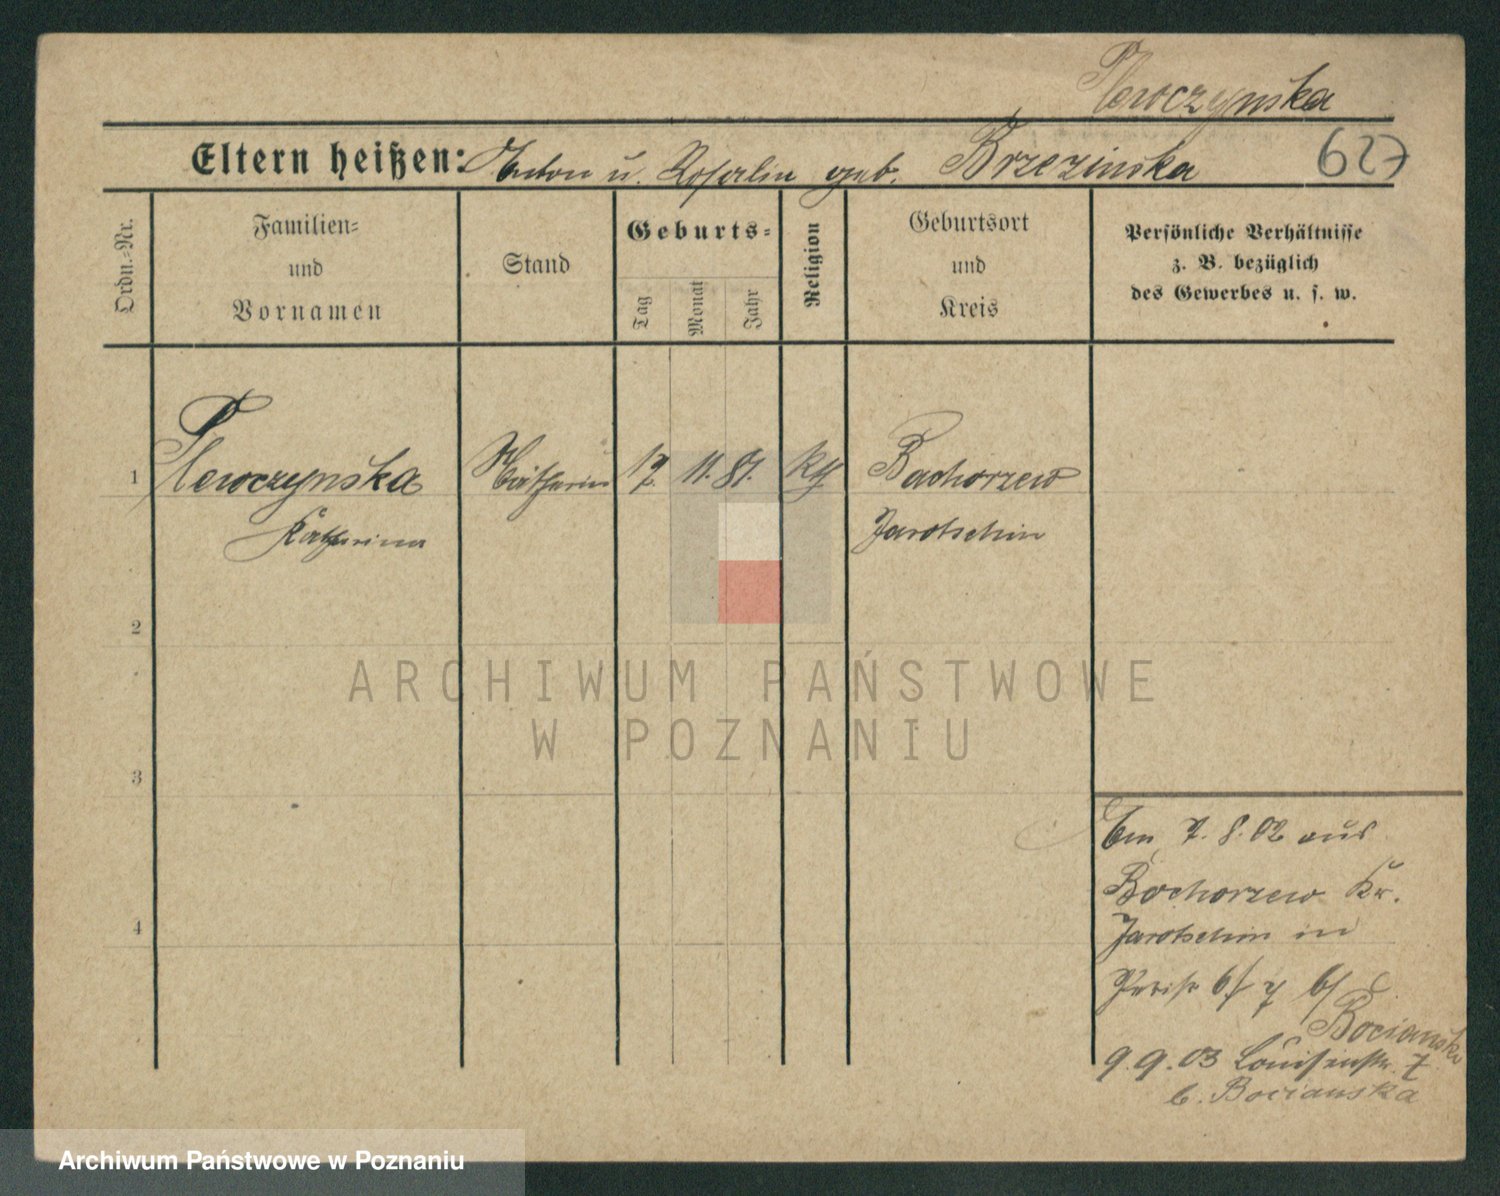 Pleroczynska
Eltern heißen: Anton u. Rosalin geb. Brzezinska
627
Ordn.-Nr.
Familien-
und
Vornamen
Stand
Geburts-
Tag
Monat
Jahr
Religion
Geburtsort
und
Kreis
Persönliche Verhältnisse
z. B. bezüglich
des Gewerbes u. s. w.
1
17. 11. 81. kath
Bachorzew
Katharina
Jarotschin
2
ARCHIWUM PAŃSTWOWE
W POZNANIU
3
4
7. 8. 02 aus
Bochorzew Kr.
Jarotschin in
Bocianska
9.9.03 Louisenstr. 7
b. Bocianska
Archiwum Państwowe w Poznaniu